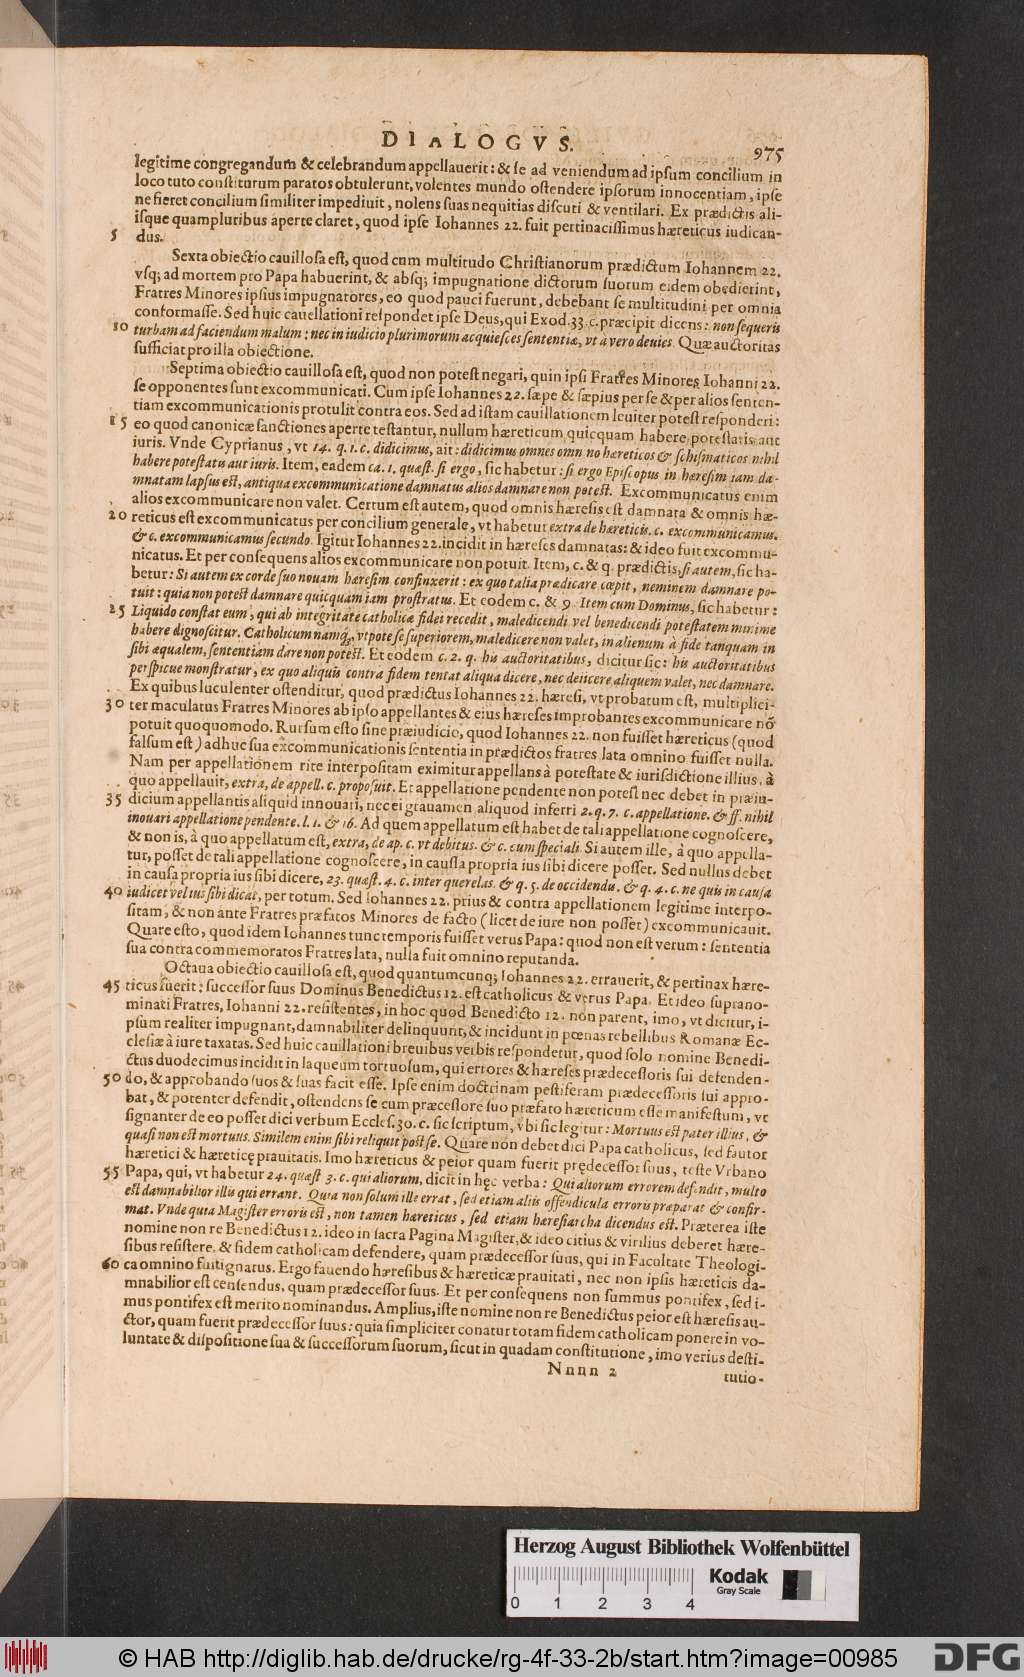 DIALOGVS. 975
legitime congregandum & celebrandum appellauerit: & se ad veniendum ad ipsum concilium in
loco tuto constiturum paratos obtulerunt, volentes mundo ostendere ipsorum innocentiam, ipse
ne fieret concilium similiter impediuit, nolens suas nequitias discuti & ventilari. Ex prædictis ali-
isque quampluribus aperte claret, quod ipse Iohannes 22. fuit pertinacissimus hæreticus iudican-
5 dus.
Sexta obiectio cauillosa est, quod cum multitudo Christianorum prædictum Iohannem 22.
vsq; ad mortem pro Papa habuerint, & absq; impugnatione dictorum suorum eidem obedierint,
Fratres Minores ipsius impugnatores, eo quod pauci fuerunt, debebant se multitudini per omnia
conformasse. Sed huic cauellationi respondet ipse Deus, qui Exod. 33. c. præcipit dicens: non sequeris
10 turbam ad faciendum malum: nec in iudicio plurimorum acquiesces sententiæ, vt à vero deuies. Quæ auctoritas
sufficiat pro illa obiectione.
Septima obiectio cauillosa est, quod non potest negari, quin ipsi Fratres Minores Iohanni 22.
se opponentes sunt excommunicati. Cum ipse Iohannes 22. sæpe & sæpius per se & per alios senten-
tiam excommunicationis protulit contra eos. Sed ad istam cauillationem leuiter potest responderi:
15 eo quod canonicæ sanctiones aperte testantur, nullum hæreticum quicquam habere potestatis aut
iuris. Vnde Cyprianus, vt 14. q. 1. c. didicimus, ait: didicimus omnes omnino hæreticos & schismaticos nihil
habere potestatis aut iuris. Item, eadem ca. 1. quæst. si ergo, sic habetur: si ergo Episcopus in hæresim iam da-
mnatam lapsus est, antiqua excommunicatione damnatus alios damnare non potest. Excommunicatus enim
alios excommunicare non valet. Certum est autem, quod omnis hæresis est damnata & omnis hæ-
20 reticus est excommunicatus per concilium generale, vt habetur extra de hæreticis. c. excommunicamus.
& c. excommunicamus secundo. Igitur Iohannes 22. incidit in hæreses damnatas: & ideo fuit excommu-
nicatus. Et per consequens alios excommunicare non potuit. Item, c. & q. prædictis, si autem, sic ha-
betur: Si autem ex corde suo nouam hæresim confinxerit: ex quo talia prædicare cœpit, neminem damnare po-
tuit: quia non potest damnare quicquam iam prostratus. Et eodem c. & 9. Item cum Dominus, sic habetur:
25 Liquido constat eum, qui ab integritate catholicæ fidei recedit, maledicendi vel benedicendi potestatem minime
habere dignoscitur. Catholicum namq;, vtpote se superiorem, maledicere non valet, in alienum à fide tanquam in
sibi æqualem, sententiam dare non potest. Et eodem c. 2. q. his auctoritatibus, dicitur sic: his auctoritatibus
perspicue monstratur, ex quo aliquis contra fidem tentat aliqua dicere, nec deiicere aliquem valet, nec damnare.
Ex quibus luculenter ostenditur, quod prædictus Iohannes 22. hæresi, vt probatum est, multiplici-
30 ter maculatus Fratres Minores ab ipso appellantes & eius hæreses improbantes excommunicare nõ
potuit quoquomodo. Rursum esto sine præiudicio, quod Iohannes 22. non fuisset hæreticus (quod
falsum est) adhuc sua excommunicationis sententia in prædictos fratres lata omnino fuisset nulla.
Nam per appellationem rite interpositam eximitur appellans à potestate & iurisdictione illius, à
quo appellauit, extra, de appell. c. proposuit. Et appellatione pendente non potest nec debet in præiu-
35 dicium appellantis aliquid innouari, nec ei grauamen aliquod inferri 2. q. 7. c. appellatione. & ff. nihil
inouari appellatione pendente. l. 1. & 16. Ad quem appellatum est habet de tali appellatione cognoscere,
& non is, à quo appellatum est, extra, de ap. c. vt debitus. & c. cum speciali. Si autem ille, à quo appella-
tur, posset de tali appellatione cognoscere, in caussa propria ius sibi dicere posset. Sed nullus debet
in causa propria ius sibi dicere, 23. quæst. 4. c. inter querelas. & q. 5. de occidendis. & q. 4. c. ne quis in causa
40 iudicet vel ius sibi dicat, per totum. Sed Iohannes 22. prius & contra appellationem legitime interpo-
sitam, & non ante Fratres præfatos Minores de facto (licet de iure non posset) excommunicauit.
Quare esto, quod idem Iohannes tunc temporis fuisset verus Papa: quod non est verum: sententia
sua contra commemoratos Fratres lata, nulla fuit omnino reputanda.
Octaua obiectio cauillosa est, quod quantumcunq; Iohannes 22. errauerit, & pertinax hære-
45 ticus fuerit: successor suus Dominus Benedictus 12. est catholicus & verus Papa. Et ideo suprano-
minati Fratres, Iohanni 22. resistentes, in hoc quod Benedicto 12. non parent, imo, vt dicitur, i-
psum realiter impugnant, damnabiliter delinquunt, & incidunt in pœnas rebellibus Romanæ Ec-
clesiæ à iure taxatas. Sed huic cauillationi breuibus verbis respondetur, quod solo nomine Benedi-
ctus duodecimus incidit in laqueum tortuosum, qui errores & hæreses prædecessoris sui defenden-
50 do, & approbando suos & suas facit esse. Ipse enim doctrinam pestiferam prædecessoris sui appro-
bat, & potenter defendit, ostendens se cum præcessore suo præfato hæreticum esse manifestum, vt
signanter de eo posset dici verbum Eccles. 30. c. sic scriptum, vbi sic legitur: Mortuus est pater illius, &
quasi non est mortuus. Similem enim sibi reliquit post se. Quare non debet dici Papa catholicus, sed fautor
hæretici & hæreticę prauitatis. Imo hæreticus & peior quam fuerit prędecessor suus, teste Vrbano
55 Papa, qui, vt habetur 24. quæst 3. c. qui aliorum, dicit in hęc verba: Qui aliorum errorem defendit, multo
est damnabilior illis qui errant. Quia non solum ille errat, sed etiam aliis offendicula erroris præparat & confir-
mat. Vnde quia Magister erroris est, non tamen hæreticus, sed etiam hæresiarcha dicendus est. Præterea iste
nomine non re Benedictus 12. ideo in sacra Pagina Magister, & ideo citius & virilius deberet hære-
sibus resistere, & fidem catholicam defendere, quam prædecessor suus, qui in Facultate Theologi-
60 ca omnino fuit ignatus. Ergo fauendo hæresibus & hæreticæ prauitati, nec non ipsis hæreticis da-
mnabilior est censendus, quam prædecessor suus. Et per consequens non summus pontifex, sed i-
mus pontifex est merito nominandus. Amplius, iste nomine non re Benedictus peior est hæresis au-
ctor, quam fuerit prædecessor suus: quia simpliciter conatur totam fidem catholicam ponere in vo-
luntate & dispositione sua & successorum suorum, sicut in quadam constitutione, imo verius desti-
Nnnn 2 tutio-
Herzog August Bibliothek Wolfenbüttel
Kodak
Gray Scale
0 1 2 3 4
© HAB http://diglib.hab.de/drucke/rg-4f-33-2b/start.htm?image=00985
DFG